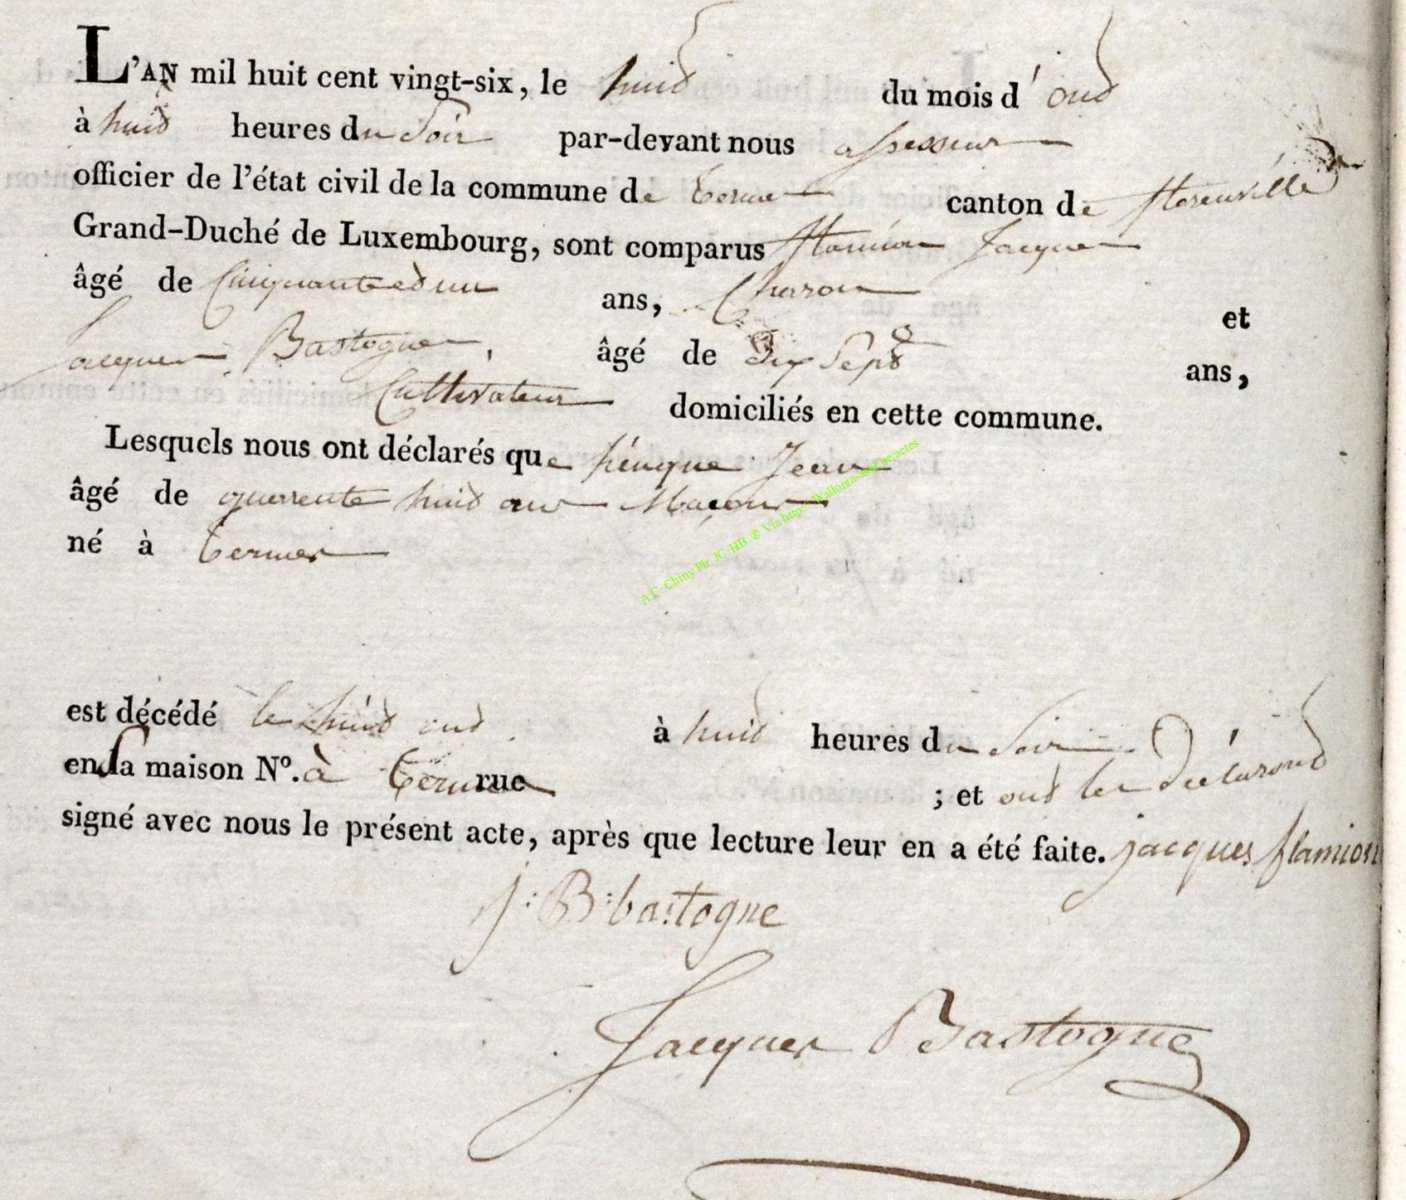 L'AN mil huit cent vingt-six, le huid du mois d' oud
à huid heures du Soir par-devant nous assesseur
officier de l'état civil de la commune de terme canton de florenville
Grand-Duché de Luxembourg, sont comparus flamion Jacques
âgé de Cinquante et un ans, Charon et
Jacques Bastogne, âgé de Dix Sept ans,
Cultivateur domiciliés en cette commune.
Lesquels nous ont déclarés que pênque Jean
âgé de quarrente huid ans Maçon
né à termes
est décédé le huid oud à huid heures du Soir
en sa maison N°. à terme rue ; et ond les Déclarond
signé avec nous le présent acte, après que lecture leur en a été faite. jacques flamion
j: B: bastogne
Jacques Bastogne